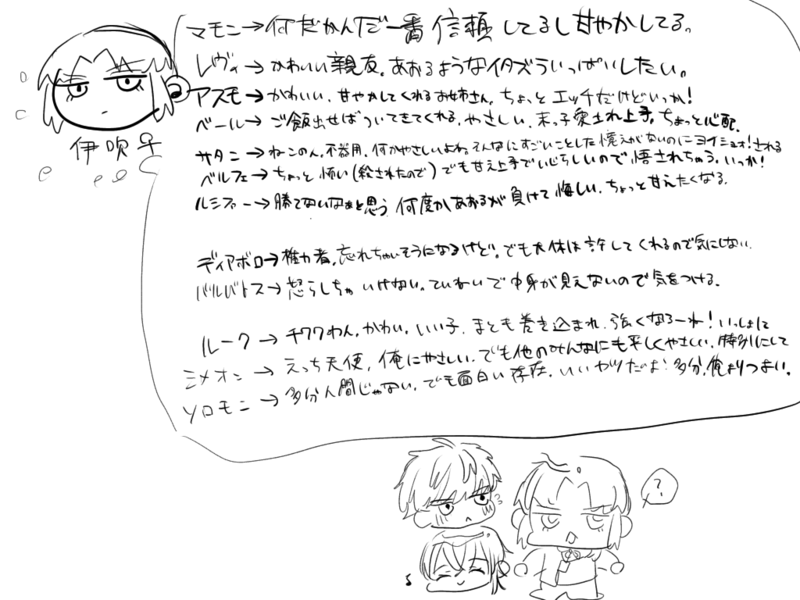 マモン→何だかんだ一番信頼してるし甘やかしてる。
レヴィ→かわいい親友。あおるようなイタズラいっぱいしたい。
アスモ→かわいい、甘やかしてくれるお姉さん。ちょっとエッチだけどいっか!
ベール→ご飯出せばついてきてくれる。やさしい、末っ子
伊吹
サタン→ねこのん。不器用。何かやさしいよね。そんなにすごいことした憶えがないのにヨイショォ!される
ベルフェ→ちょっと怖い(殺されたので)でも甘え上手でいじらしいので悟されちゃう。いっか!
ルシファー→勝てないなぁと思う。何度かあおるが負けて悔しい。ちょっと甘えたくなる。
ディアボロ→権力者。忘れちゃいそうになるけど。でも大体は許してくれるので気にしない
バルバトス→怒らしちゃいけない。ていねいで中身が見えないので気をつける。
ルーク→チワワわん。かわいい。いい子。まとも巻き込まれ。強くなろーね!いっしょに
シメオン→えっち天使。俺にやさしい。でも他のみんなにも平しくやさしい。特別にして
ソロモン→多分人間じゃない。でも面白い存在。いいヤツだよ!多分。俺よりつよい。
?